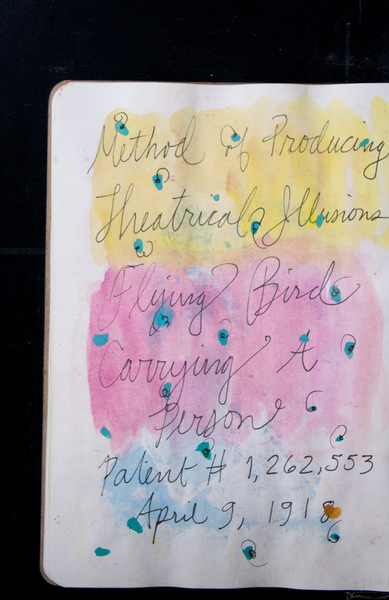 Method of Producing
Theatrical Illusions
Flying Bird
Carrying A
Person
Patent # 1,262,553
April 9, 1918